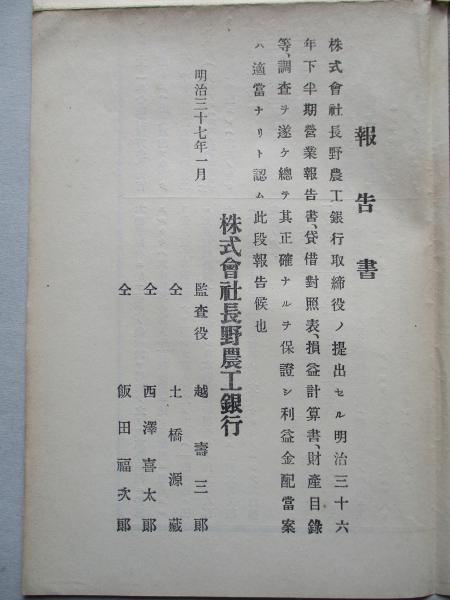 報告書
株式會社長野農工銀行取締役ノ提出セル明治三十六
年下半期營業報告書、貸借對照表、損益計算書、財產目錄
等、調査ヲ遂ケ總テ其正確ナルヲ保證シ利益金配當案
ハ適當ナリト認ム此段報告候也
明治三十七年一月
株式會社長野農工銀行
監査役 越壽三郞
仝 土橋源藏
仝 西澤喜太郞
仝 飯田福次郞